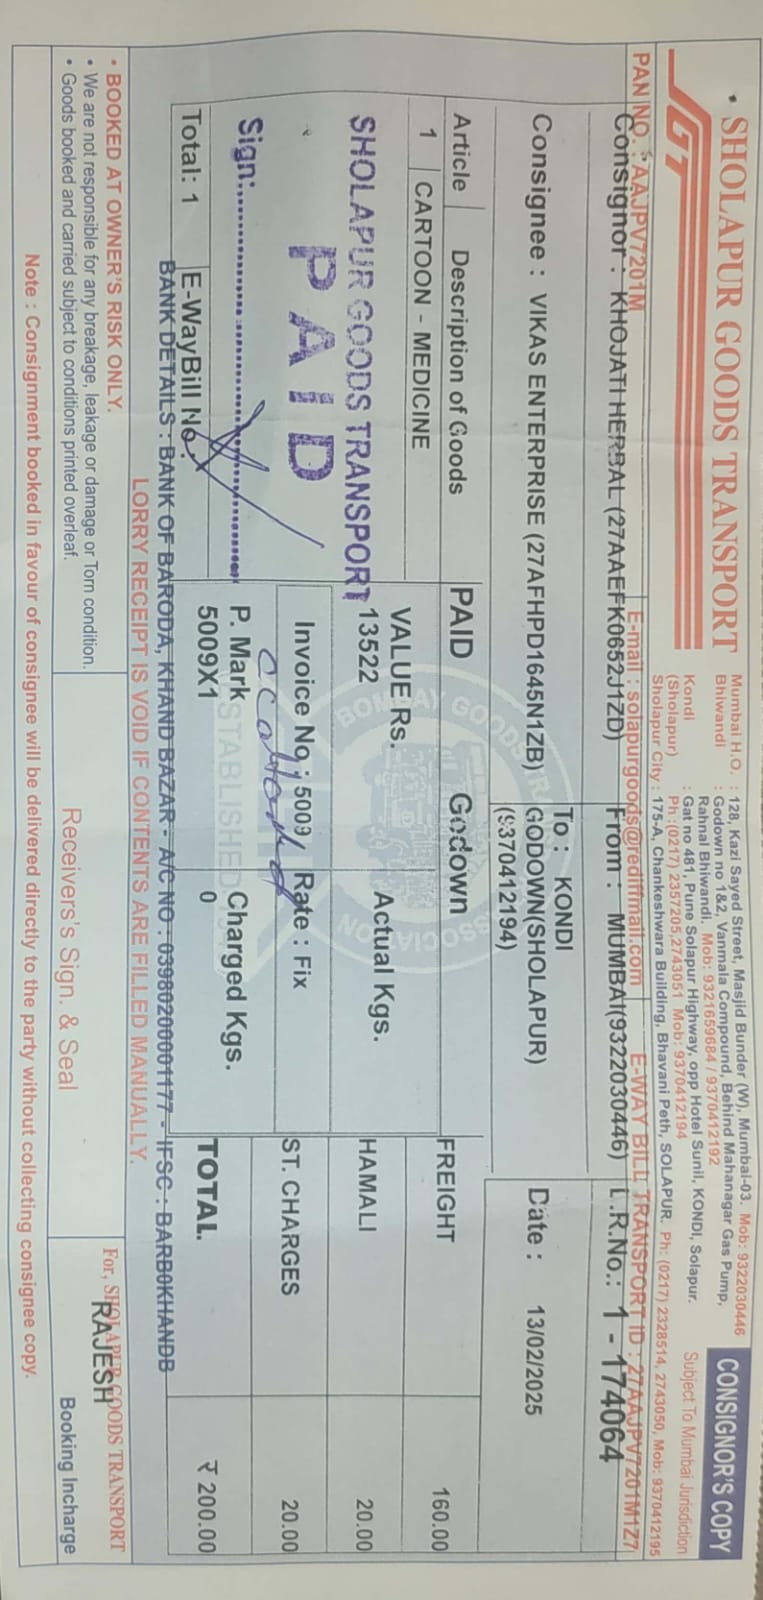 SHOLAPUR GOODS TRANSPORT
SGT
Mumbai H.O. : 128, Kazi Sayed Street, Masjid Bunder (W), Mumbai-03. Mob: 9322030446
Bhiwandi : Godown no 1&2, Vanmala Compound, Behind Mahanagar Gas Pump,
Rahnal Bhiwandi. Mob: 9321659684 / 9370412192
Kondi : Gat no 481, Pune Solapur Highway, opp Hotel Sunil, KONDI, Solapur.
(Sholapur) Ph: (0217) 2357205,2743051 Mob: 9370412194
Sholapur City : 175-A, Chankeshwara Building, Bhavani Peth, SOLAPUR. Ph: (0217) 2328514, 2743050, Mob: 9370412195
CONSIGNOR'S COPY
Subject To Mumbai Jurisdiction
PAN NO. : AAJPV7201M E-mail : solapurgoods@rediffmail.com E-WAY BILL TRANSPORT ID : 27AAJPV7201M1Z7
Consignor : KHOJATI HERBAL (27AAEFK0652J1ZD) From : MUMBAI(9322030446) L.R.No.: 1 - 174064
Consignee : VIKAS ENTERPRISE (27AFHPD1645N1ZB) To : KONDI GODOWN(SHOLAPUR) (9370412194) Date : 13/02/2025
Article Description of Goods PAID Godown FREIGHT 160.00
1 CARTOON - MEDICINE VALUE Rs. Actual Kgs.
13522 HAMALI 20.00
SHOLAPUR GOODS TRANSPORT
PAID
Sign:
Invoice No : 5009 Rate : Fix ST. CHARGES 20.00
P. Mark Charged Kgs. TOTAL ₹ 200.00
5009X1 0
Total: 1 E-WayBill No
BOMBAY GOODS TRANSPORT ASSOCIATION
ESTABLISHED
BANK DETAILS : BANK OF BARODA, KHAND BAZAR - A/C NO : 03980200001177 - IFSC : BARB0KHANDB
LORRY RECEIPT IS VOID IF CONTENTS ARE FILLED MANUALLY.
• BOOKED AT OWNER'S RISK ONLY.
• We are not responsible for any breakage, leakage or damage or Torn condition.
• Goods booked and carried subject to conditions printed overleaf.
Receivers's Sign. & Seal
For, SHOLAPUR GOODS TRANSPORT
RAJESH
Booking Incharge
Note : Consignment booked in favour of consignee will be delivered directly to the party without collecting consignee copy.